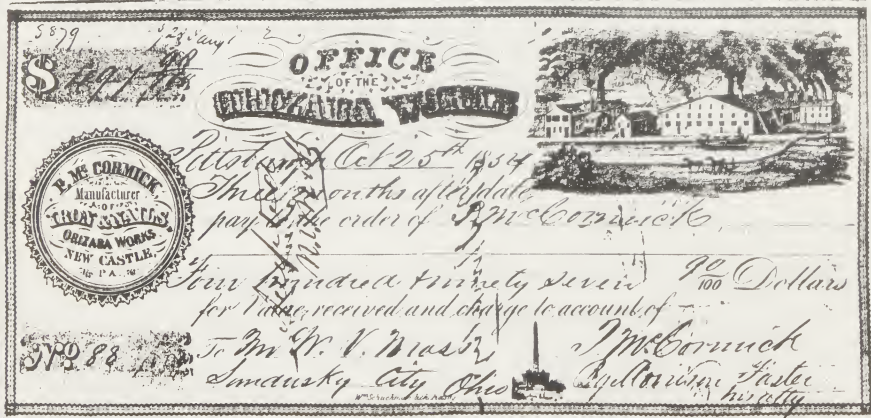 5879
$ 497 90/100
OFFICE
OF THE
ORIZABA WORKS
P. Mc CORMICK
Manufacturer
OF
IRON & NAILS
ORIZABA WORKS
NEW CASTLE,
PA.
Pittsburgh Oct 25th 1854
Three months after date
pay to the order of P. McCormick
Four hundred & ninety seven 90/100 Dollars
for Value, received and charge to account of
No 88
To Mr W. V.
P McCormick
Sandusky City Ohio
By Morrison Foster
his atty